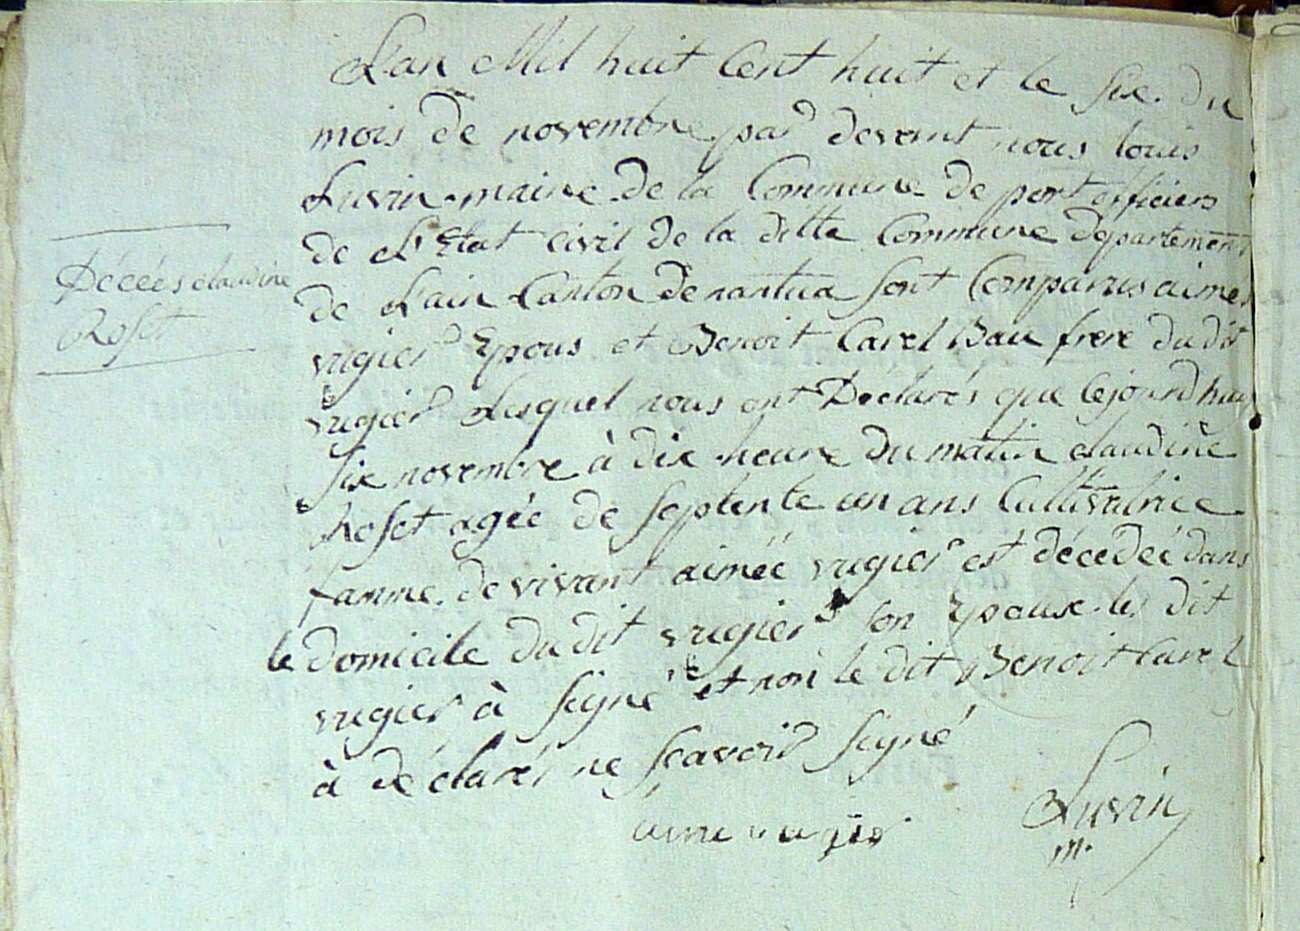 Décées claudine
Roset
L'an Mil huit Cent huit et le six du
mois de novembre par devent nous louis
Luvin maire de la Commune de port officiers
de L'Etat civil de la ditte Commune departement
de L'ain Canton de nantua sont Comparus aimé
vugier Epous et Benoit Carel Bau frere du dit
vugier Lesquel nous ont Déclarés que cejourd huy
six novembre à dix heure du matin claudine
Roset agée de septente un ans Cultivatrice
famme de vivant aimée vugier est décédéé dans
le domicile du dit vugier son Epoux le dit
vugier à signé et non le dit Benoit Carel
à déclarés ne scavoir signé
aime vugier
Luvin
m.